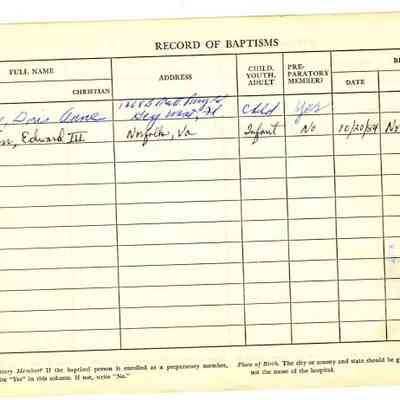 RECORD OF BAPTISMS
FULL NAME
CHRISTIAN
ADDRESS
CHILD, YOUTH, ADULT
PRE-PARATORY MEMBER?
DATE
Doris Anne
Key West, Fl
Child
Yes
Edward III
Norfolk, Va
Infant
No
10/20/54
No
Member? If the baptized person is enrolled as a preparatory member,
"Yes" in this column. If not, write "No."
Place of Birth. The city or county and state should be g
not the name of the hospital.